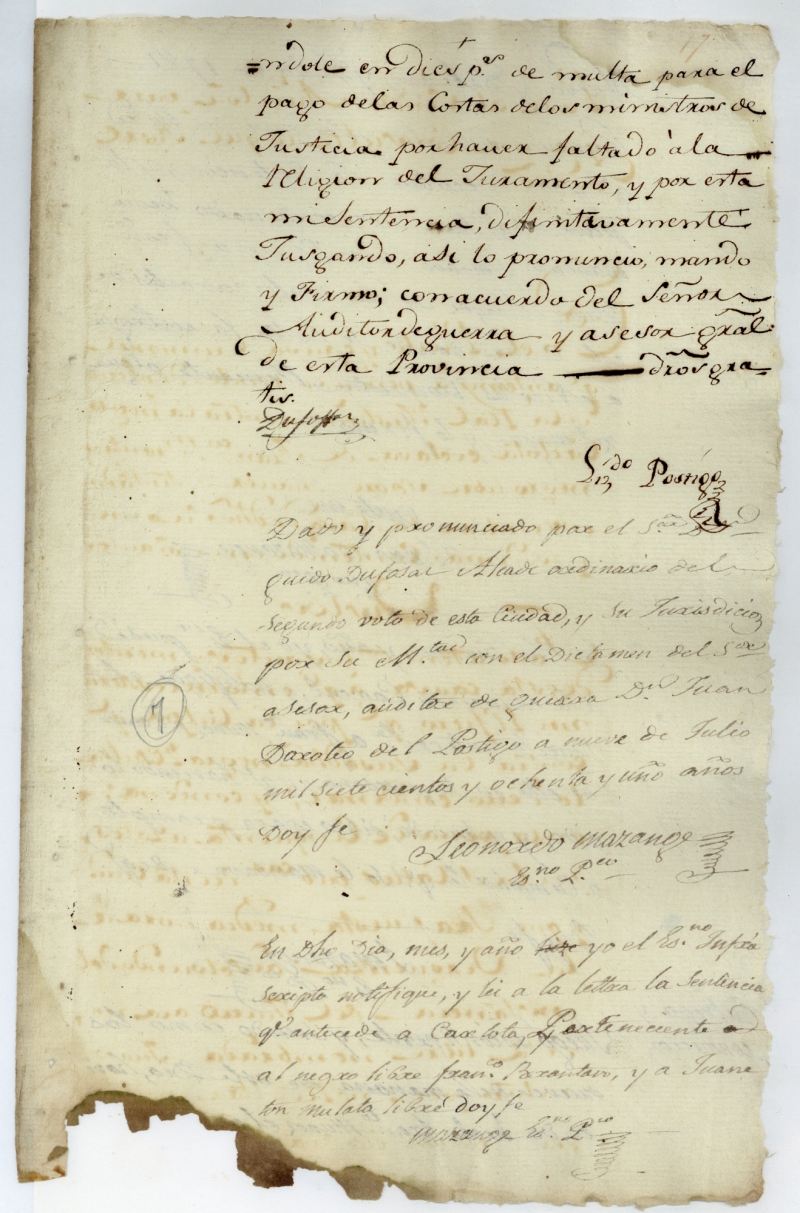 =ndole en dies p.s de multa para el
pago delas Costas delos ministros de
Justicia por haver faltado ala
religion del Juramento, y por esta
mi Sentencia, difinitavamente
Jusgando, asi lo pronuncio, mando
y Firmo; conacuerdo del Señor
Auditor deguerra y asesor grãl
de esta Provincia — drõs gra=
tis.
Dufossar
Lizdo Postigo
Dado y pronunciado por el S.or
guido Dufosar Alcade ordinario del
segundo voto de esta Ciudad, y su Jurisdicio
por su M.tad con el Dictamen del Sor
asesor, auditor de guerra D.n Juan
Daroteo del Postigo a nueve de Julio
mil siete cientos y ochenta y uño años
Doy fe
Leonardo Mazange
Es.no P.co
1
En Dho Dia, mes, y año yo el Es.no Infra
scripto notifique, y lei a la lettra la Sentencia
q.e antecede a Carlota, Perteneciente
al negro libre fran.co, y a Juane
ton mulata libre doy fe
Mazange Es.no P.co